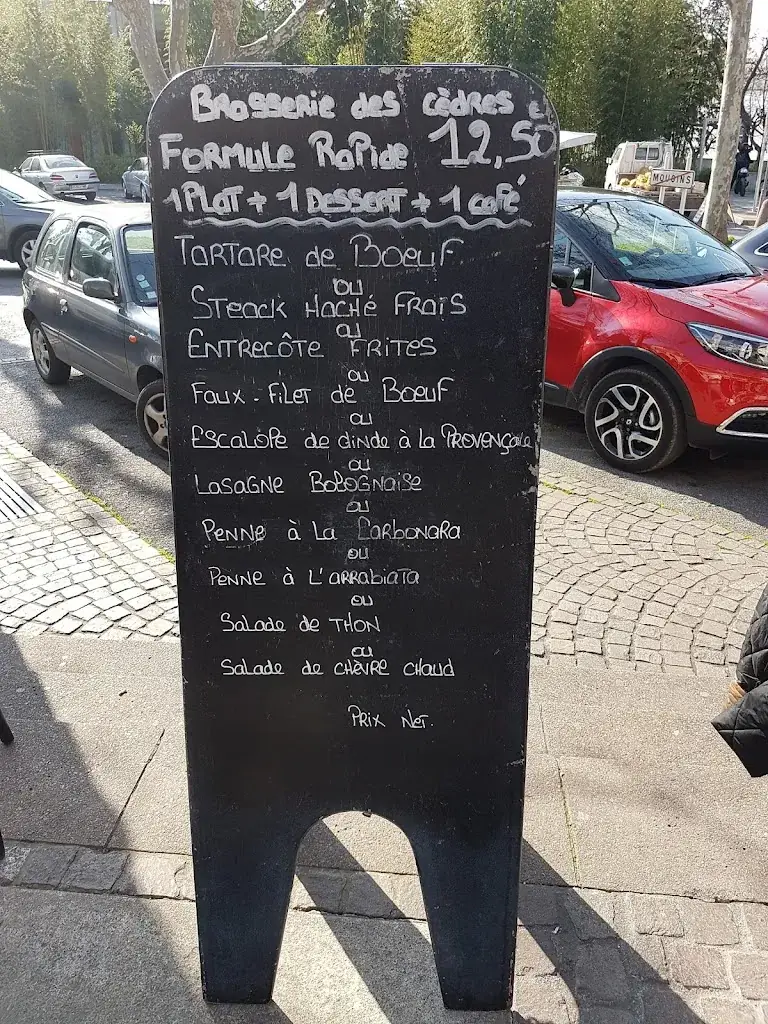 Brasserie des cèdres
Formule Rapide 12,50
1 Plat + 1 Dessert + 1 café
Tartare de Boeuf
ou
Steack Haché Frais
ou
Entrecôte Frites
ou
Faux-Filet de Boeuf
ou
Escalope de dinde à la Provençale
ou
Lasagne Bolognaise
ou
Penne à La Carbonara
ou
Penne à L'arrabiata
ou
Salade de Thon
ou
Salade de chèvre chaud
Prix Net.
MOUGINS